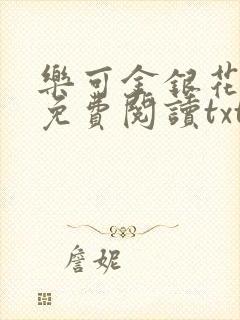 樂可金銀花
免費閱讀txt
詹妮